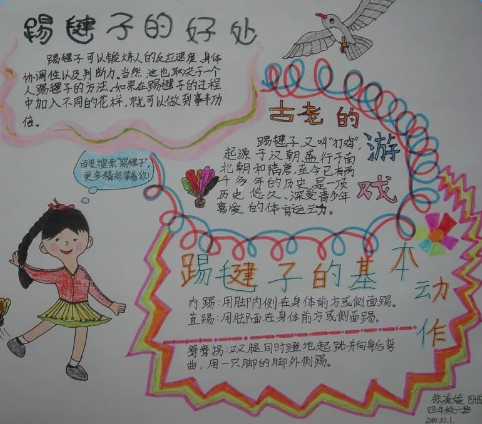 踢毽子的好处
踢毽子可以锻炼人的反应速度、身体
协调性以及判断力。当然,这也取决于一个
人踢毽子的方法,如果在踢毽子的过程
中加入不同的花样,就可以做到事半功
倍。
古老的
游戏
踢毽子,又叫"打鸡",
起源于汉朝,盛行于南
北朝和隋唐,至今已有两
千多年的历史,是一项
历史悠久、深受青少年
喜爱的体育运动。
百度搜索"踢毽子",
更多精彩等着你!
踢毽子的基本
动作
内踢:用脚内侧在身体前方或侧面踢。
直踢:用脚面在身体前方或侧面踢。
鸳鸯拐:双腿同时蹬地起跳并向后弯
曲,用一只脚的脚外侧踢。
四年级六班